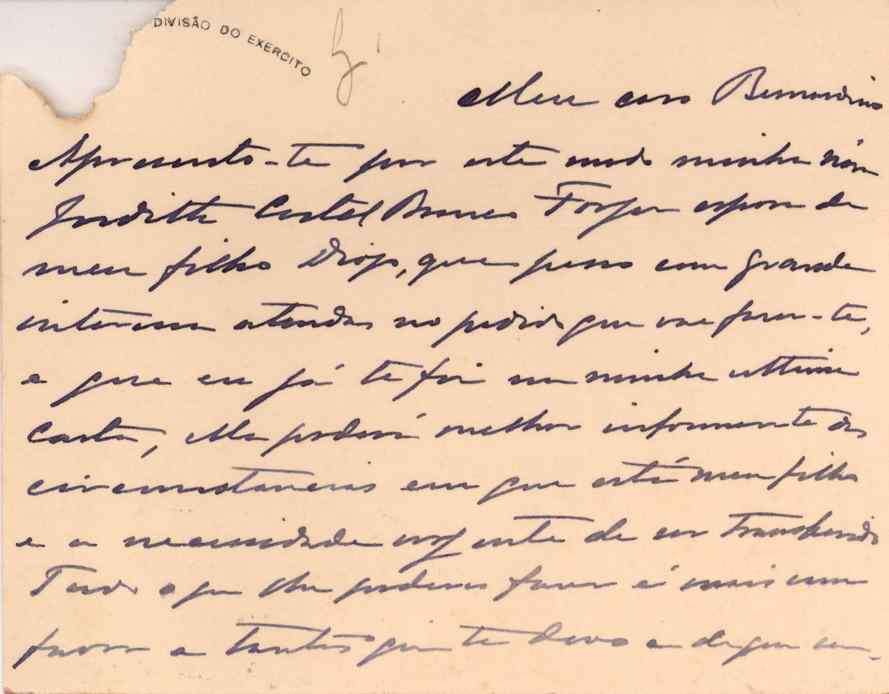 DIVISÃO DO EXERCITO
Meu caro Bernardino
Apresento-te por este modo minha nóra
Judith Castel Branco esposa de
meu filho Diogo, que peço com grande
interesse atendas no pedido que vae fazer-te,
e que eu já te fiz na minha ultima
carta, Ella poderá melhor informar-te das
circumstancias em que está meu filho
e a necessidade urgente de ser transferido
Tudo o que lhe poderes fazer é mais um
favor a tantos que te devo e de que